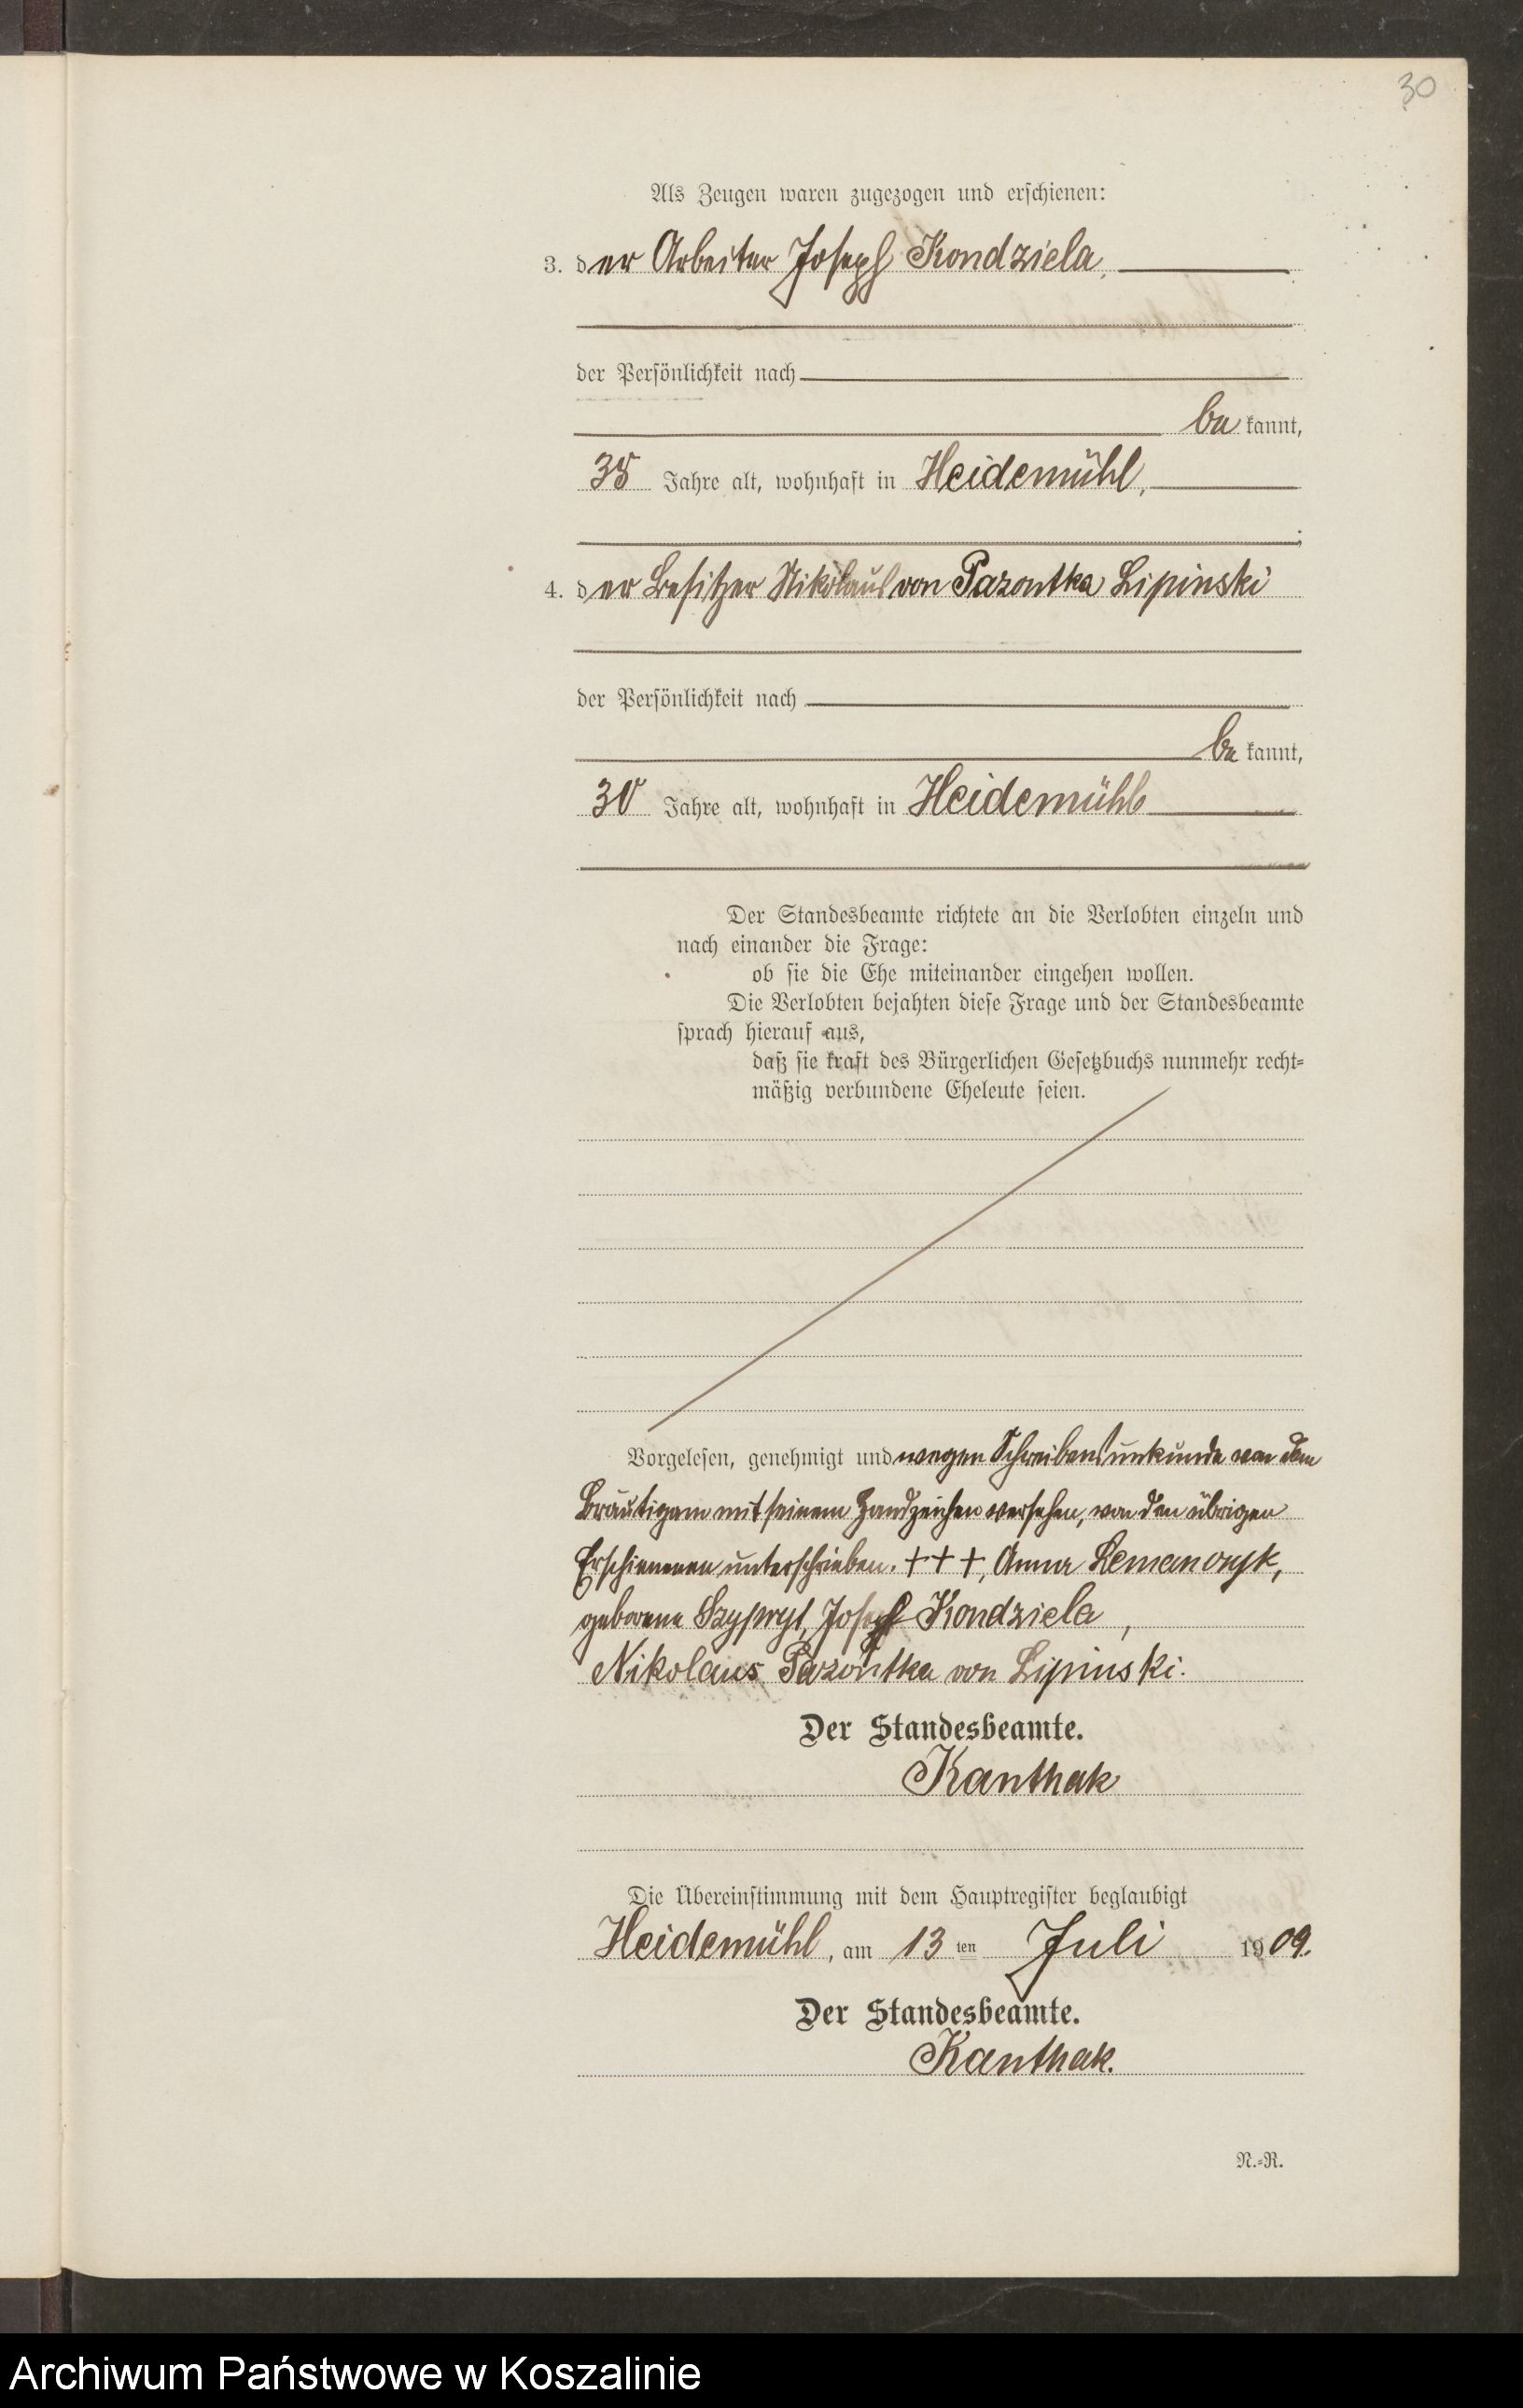 30
Als Zeugen waren zugezogen und erschienen:
3. der Arbeiter Joseph Kondziela,
der Persönlichkeit nach
be kannt,
35 Jahre alt, wohnhaft in Heidemühl,
4. der Besitzer Nikolaus von Pazontka Lipinski
der Persönlichkeit nach
be kannt,
30 Jahre alt, wohnhaft in Heidemühl
Der Standesbeamte richtete an die Verlobten einzeln und
nach einander die Frage:
ob sie die Ehe miteinander eingehen wollen.
Die Verlobten bejahten diese Frage und der Standesbeamte
sprach hierauf aus,
daß sie kraft des Bürgerlichen Gesetzbuchs nunmehr recht-
mäßig verbundene Eheleute seien.
Vorgelesen, genehmigt und wegen Schreibensunkunde von dem
Bräutigam mit seinem Handzeichen versehen, von den übrigen
Erschienenen unterschrieben. +++, Anna
geborene Joseph Kondziela,
Nikolaus Pazontka von Lipinski.
Der Standesbeamte.
Kanthak
Die Übereinstimmung mit dem Hauptregister beglaubigt
Heidemühl, am 13 ten Juli 1909.
Der Standesbeamte.
Kanthak.
N.-R.
Archiwum Państwowe w Koszalinie